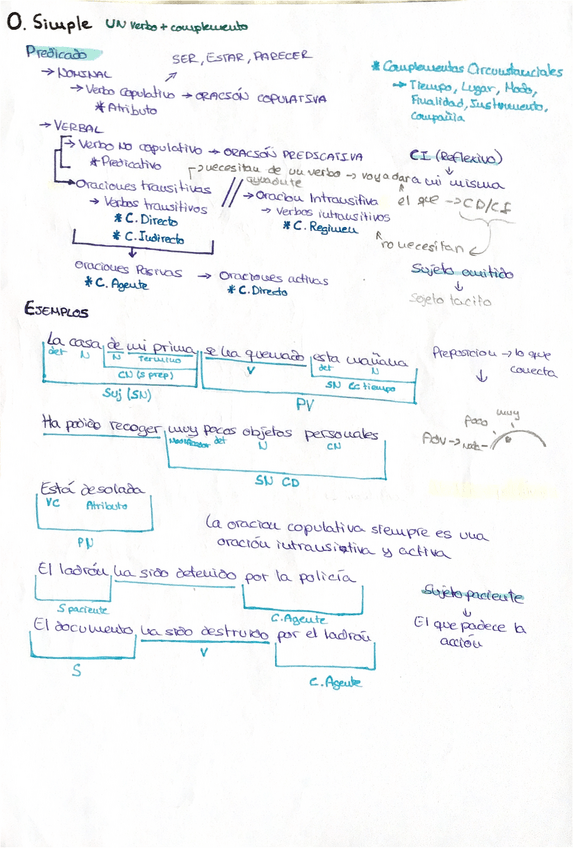 O. Simple UN verbo + complemento
Predicado
SER, ESTAR, PARECER
→ NOMINAL
→ Verbo copulativo → ORACSÓN COPULATIVA
* Atributo
* Complementos Circunstanciales
→ Tiempo, Lugar, Modo,
Finalidad, Instrumento,
Compañia
→ VERBAL
→ Verbo No copulativo → ORACSÓN PREDICATIVA
* Predicativo
→ necesitan de un verbo → voy a dar a mi misma
ayudute
CI (Reflexivo)
→ Oraciones transitivas // → Oracion Intransitiva
el que → CD/CI
→ Verbos transitivos
→ Verbos intransitivos
* C. Directo
* C. Regimen
* C. Indirecto
no necesitan
Oraciones Pasivas → Oraciones activas
* C. Agente
* C. Directo
Sujeto omitido
↓
Sujeto tacito
EJEMPLOS
La casa de mi prima se ha quemado esta mañana
det N N Termino V det N
CN (S prep) SN CC tiempo
Suj (SN) PV
Preposicion → lo que
conecta
Ha podido recoger muy pocos objetos personales
Modificador det N CN
SN CD
muy
poco
Adv → nada
Está desolada
VC Atributo
PN
La oracion copulativa siempre es una
oración intransitiva y activa
El ladrón ha sido detenido por la policía
S paciente C. Agente
Sujeto paciente
↓
El que padece la
acción
El documento ha sido destruido por el ladrón
S V C. Agente